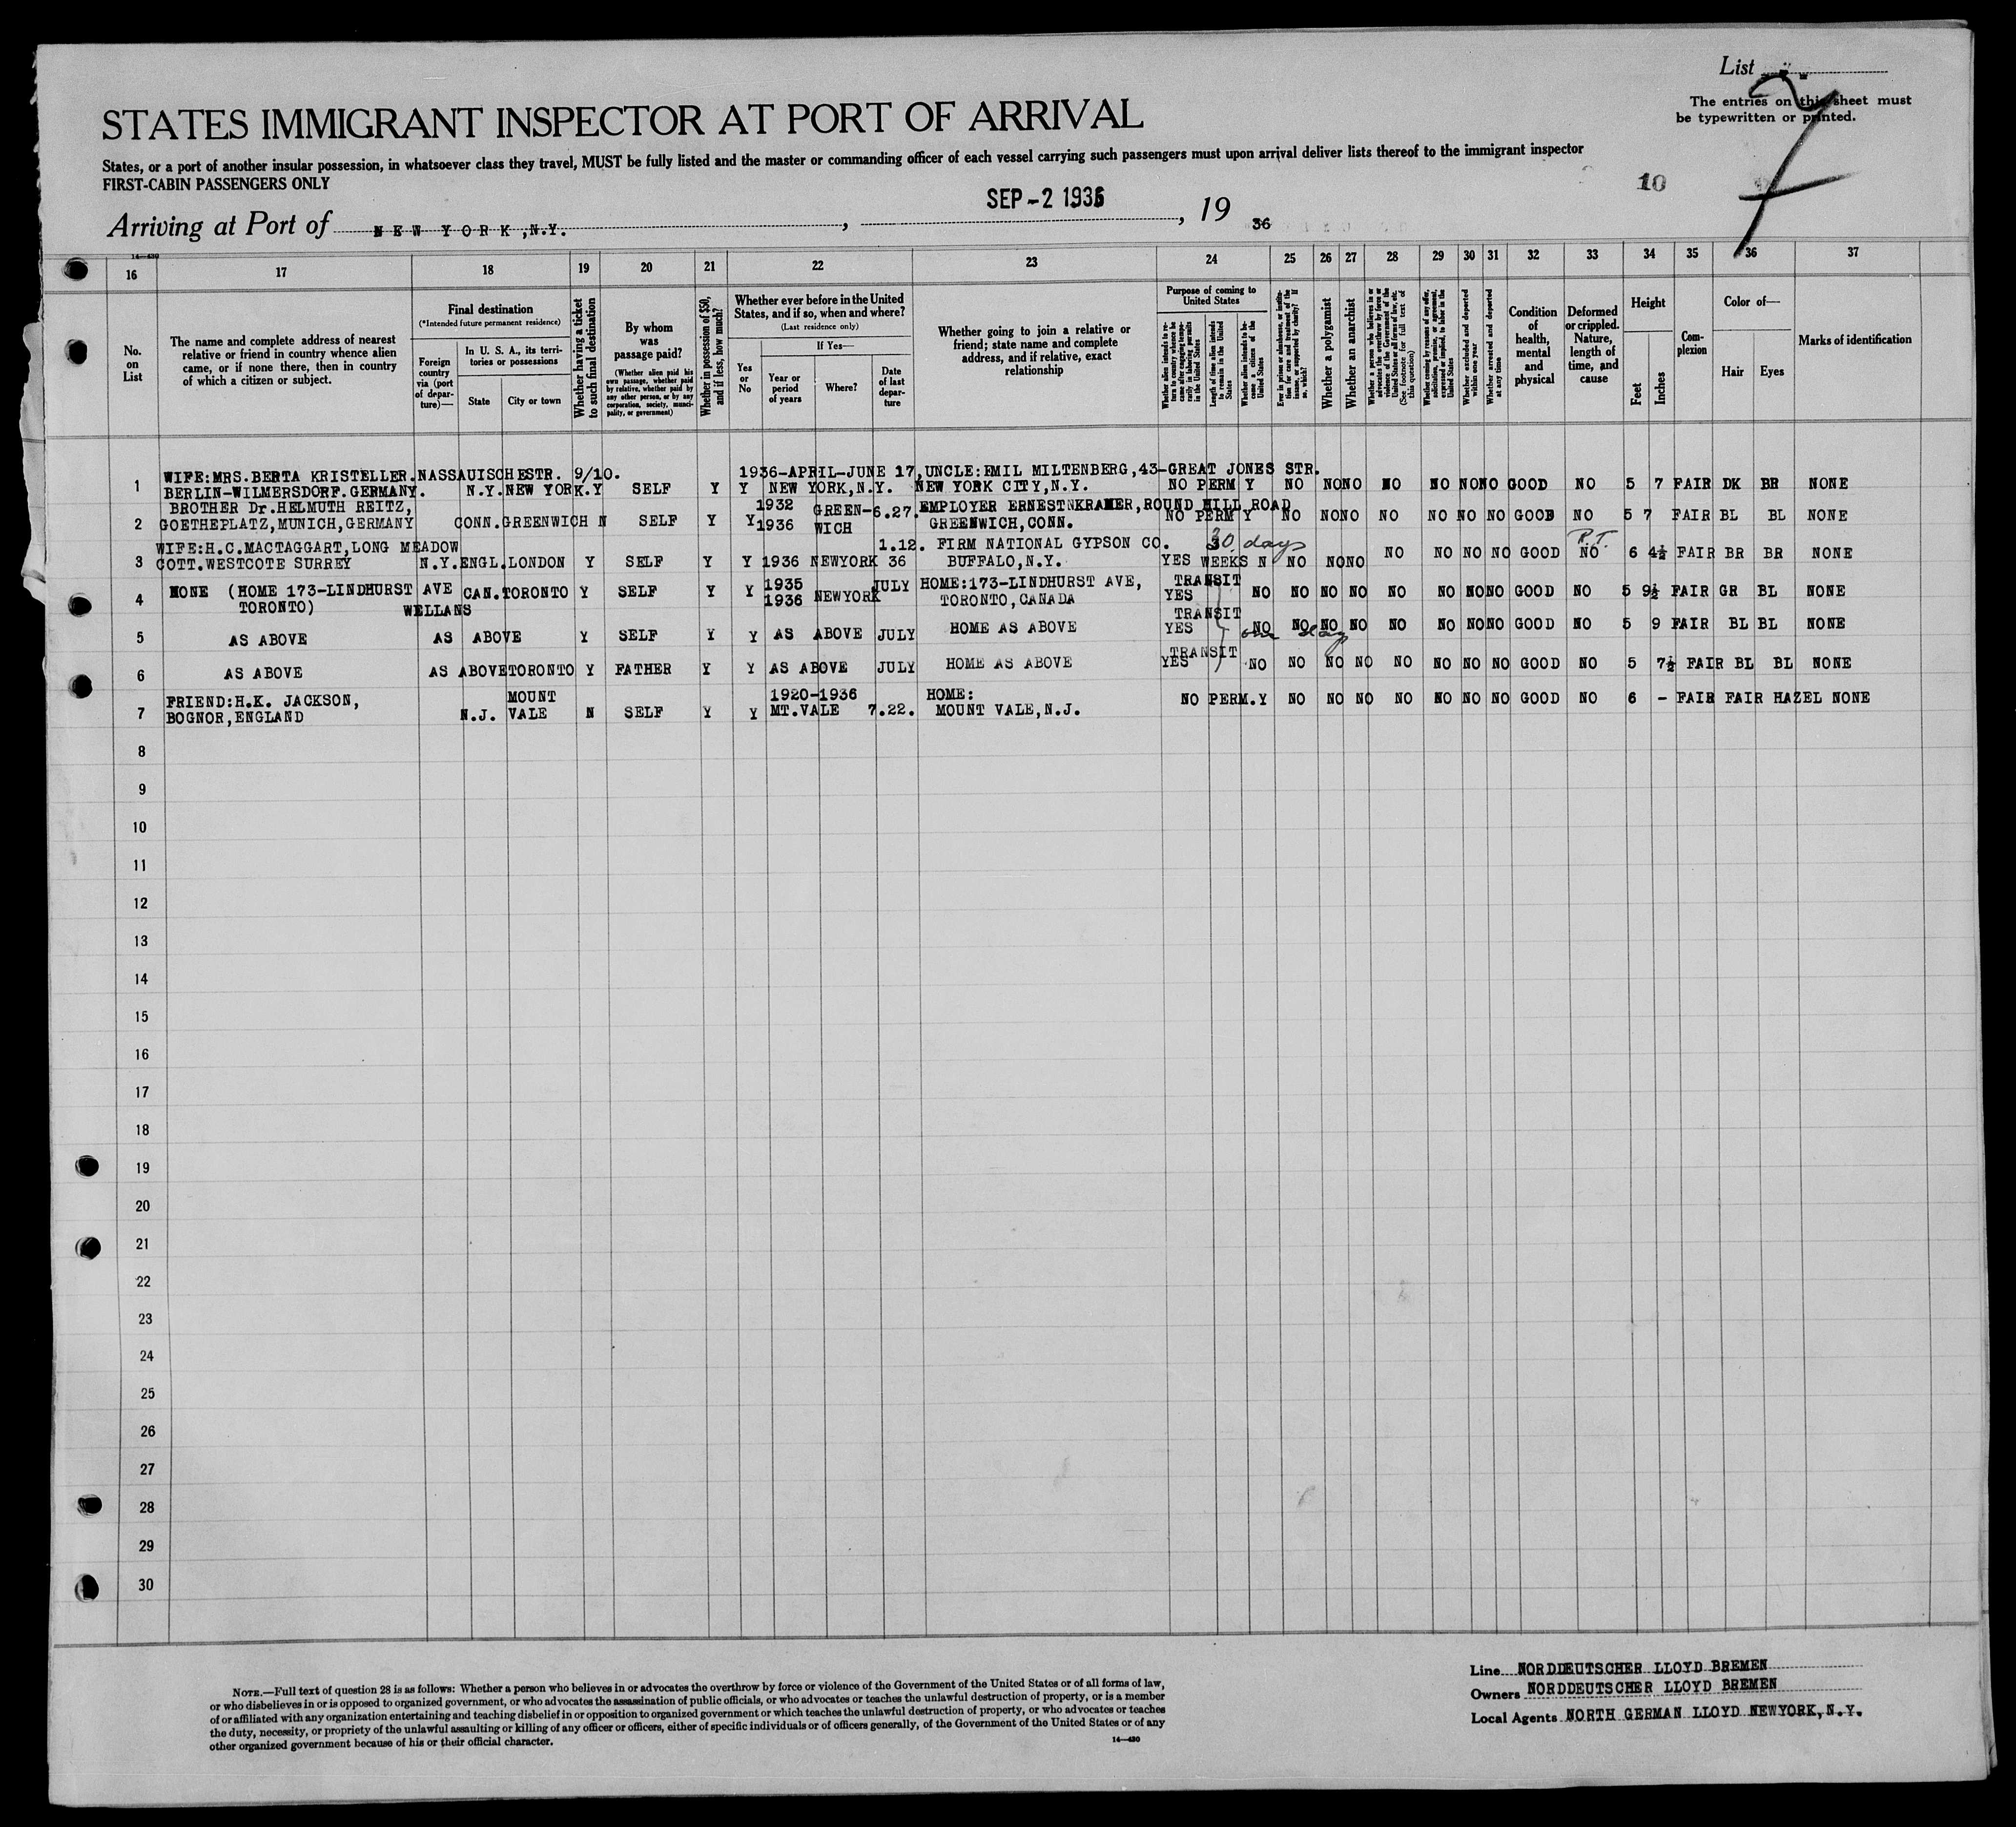 List
The entries on this sheet must
be typewritten or printed.
STATES IMMIGRANT INSPECTOR AT PORT OF ARRIVAL
States, or a port of another insular possession, in whatsoever class they travel, MUST be fully listed and the master or commanding officer of each vessel carrying such passengers must upon arrival deliver lists thereof to the immigrant inspector
FIRST-CABIN PASSENGERS ONLY
10
Arriving at Port of NEW YORK ,N.Y. , SEP -2 1936 , 19 36
14—430
16 17 18 19 20 21 22 23 24 25 26 27 28 29 30 31 32 33 34 35 36 37
No. on List
The name and complete address of nearest
relative or friend in country whence alien
came, or if none there, then in country
of which a citizen or subject.
Final destination
(*Intended future permanent residence)
Foreign country via (port of departure)—
In U. S. A., its territories or possessions
State
City or town
Whether having a ticket to such final destination
By whom was passage paid?
(Whether alien paid his own passage, whether paid by relative, whether paid by any other person, or by any corporation, society, municipality, or government)
Whether in possession of $50, and if less, how much?
Whether ever before in the United States, and if so, when and where?
(Last residence only)
Yes or No
If Yes—
Year or period of years
Where?
Date of last departure
Whether going to join a relative or
friend; state name and complete
address, and if relative, exact
relationship
Purpose of coming to United States
Length of time alien intends to remain in the United States
Whether alien intends to become a citizen of the United States
Whether a polygamist
Whether an anarchist
Whether excluded and deported within one year
Whether arrested and deported at any time
Condition of health, mental and physical
Deformed or crippled. Nature, length of time, and cause
Height
Feet
Inches
Complexion
Color of—
Hair
Eyes
Marks of identification
1 WIFE:MRS.BERTA KRISTELLER.NASSAUISCHESTR. 9/10. 1936-APRIL-JUNE 17, UNCLE:EMIL MILTENBERG,43-GREAT JONES STR.
BERLIN-WILMERSDORF.GERMANY. N.Y. NEW YORK.Y SELF Y Y NEW YORK,N.Y. NEW YORK CITY,N.Y. NO PERM Y NO NO NO NO NO NO NO GOOD NO 5 7 FAIR DK BR NONE
2 BROTHER Dr.HELMUTH REITZ, 1932 GREEN- 6.27. EMPLOYER ERNEST KRAMER,ROUND HILL ROAD
GOETHEPLATZ,MUNICH,GERMANY CONN. GREENWICH N SELF Y Y 1936 WICH GREENWICH,CONN. NO PERM Y NO NO NO NO NO NO NO GOOD NO 5 7 FAIR BL BL NONE
3 WIFE:H.C.MACTAGGART,LONG MEADOW 1.12. FIRM NATIONAL GYPSON CO. 30 days P.T.
COTT.WESTCOTE SURREY N.Y. ENGL. LONDON Y SELF Y Y 1936 NEWYORK 36 BUFFALO,N.Y. YES WEEKS N NO NO NO NO NO NO NO GOOD NO 6 4½ FAIR BR BR NONE
4 NONE (HOME 173-LINDHURST AVE CAN. TORONTO Y SELF Y Y 1935 NEWYORK JULY HOME:173-LINDHURST AVE, TRANSIT
TORONTO) WELLANS 1936 TORONTO,CANADA YES NO NO NO NO NO NO NO NO GOOD NO 5 9½ FAIR GR BL NONE
5 AS ABOVE AS ABOVE Y SELF Y Y AS ABOVE JULY HOME AS ABOVE TRANSIT YES one day NO NO NO NO NO NO NO NO GOOD NO 5 9 FAIR BL BL NONE
6 AS ABOVE AS ABOVE TORONTO Y FATHER Y Y AS ABOVE JULY HOME AS ABOVE TRANSIT YES NO NO NO NO NO NO NO NO GOOD NO 5 7½ FAIR BL BL NONE
7 FRIEND:H.K. JACKSON, MOUNT 1920-1936 HOME:
BOGNOR,ENGLAND N.J. VALE N SELF Y Y MT.VALE 7.22. MOUNT VALE,N.J. NO PERM.Y NO NO NO NO NO NO NO GOOD NO 6 - FAIR FAIR HAZEL NONE
8
9
10
11
12
13
14
15
16
17
18
19
20
21
22
23
24
25
26
27
28
29
30
NOTE.—Full text of question 28 is as follows: Whether a person who believes in or advocates the overthrow by force or violence of the Government of the United States or of all forms of law,
or who disbelieves in or is opposed to organized government, or who advocates the assassination of public officials, or who advocates or teaches the unlawful destruction of property, or is a member
of or affiliated with any organization entertaining and teaching disbelief in or opposition to organized government or which teaches the unlawful destruction of property, or who advocates or teaches
the duty, necessity, or propriety of the unlawful assaulting or killing of any officer or officers, either of specific individuals or of officers generally, of the Government of the United States or of any
other organized government because of his or their official character.
14—430
Line NORDDEUTSCHER LLOYD BREMEN
Owners NORDDEUTSCHER LLOYD BREMEN
Local Agents NORTH GERMAN LLOYD NEWYORK,N.Y.